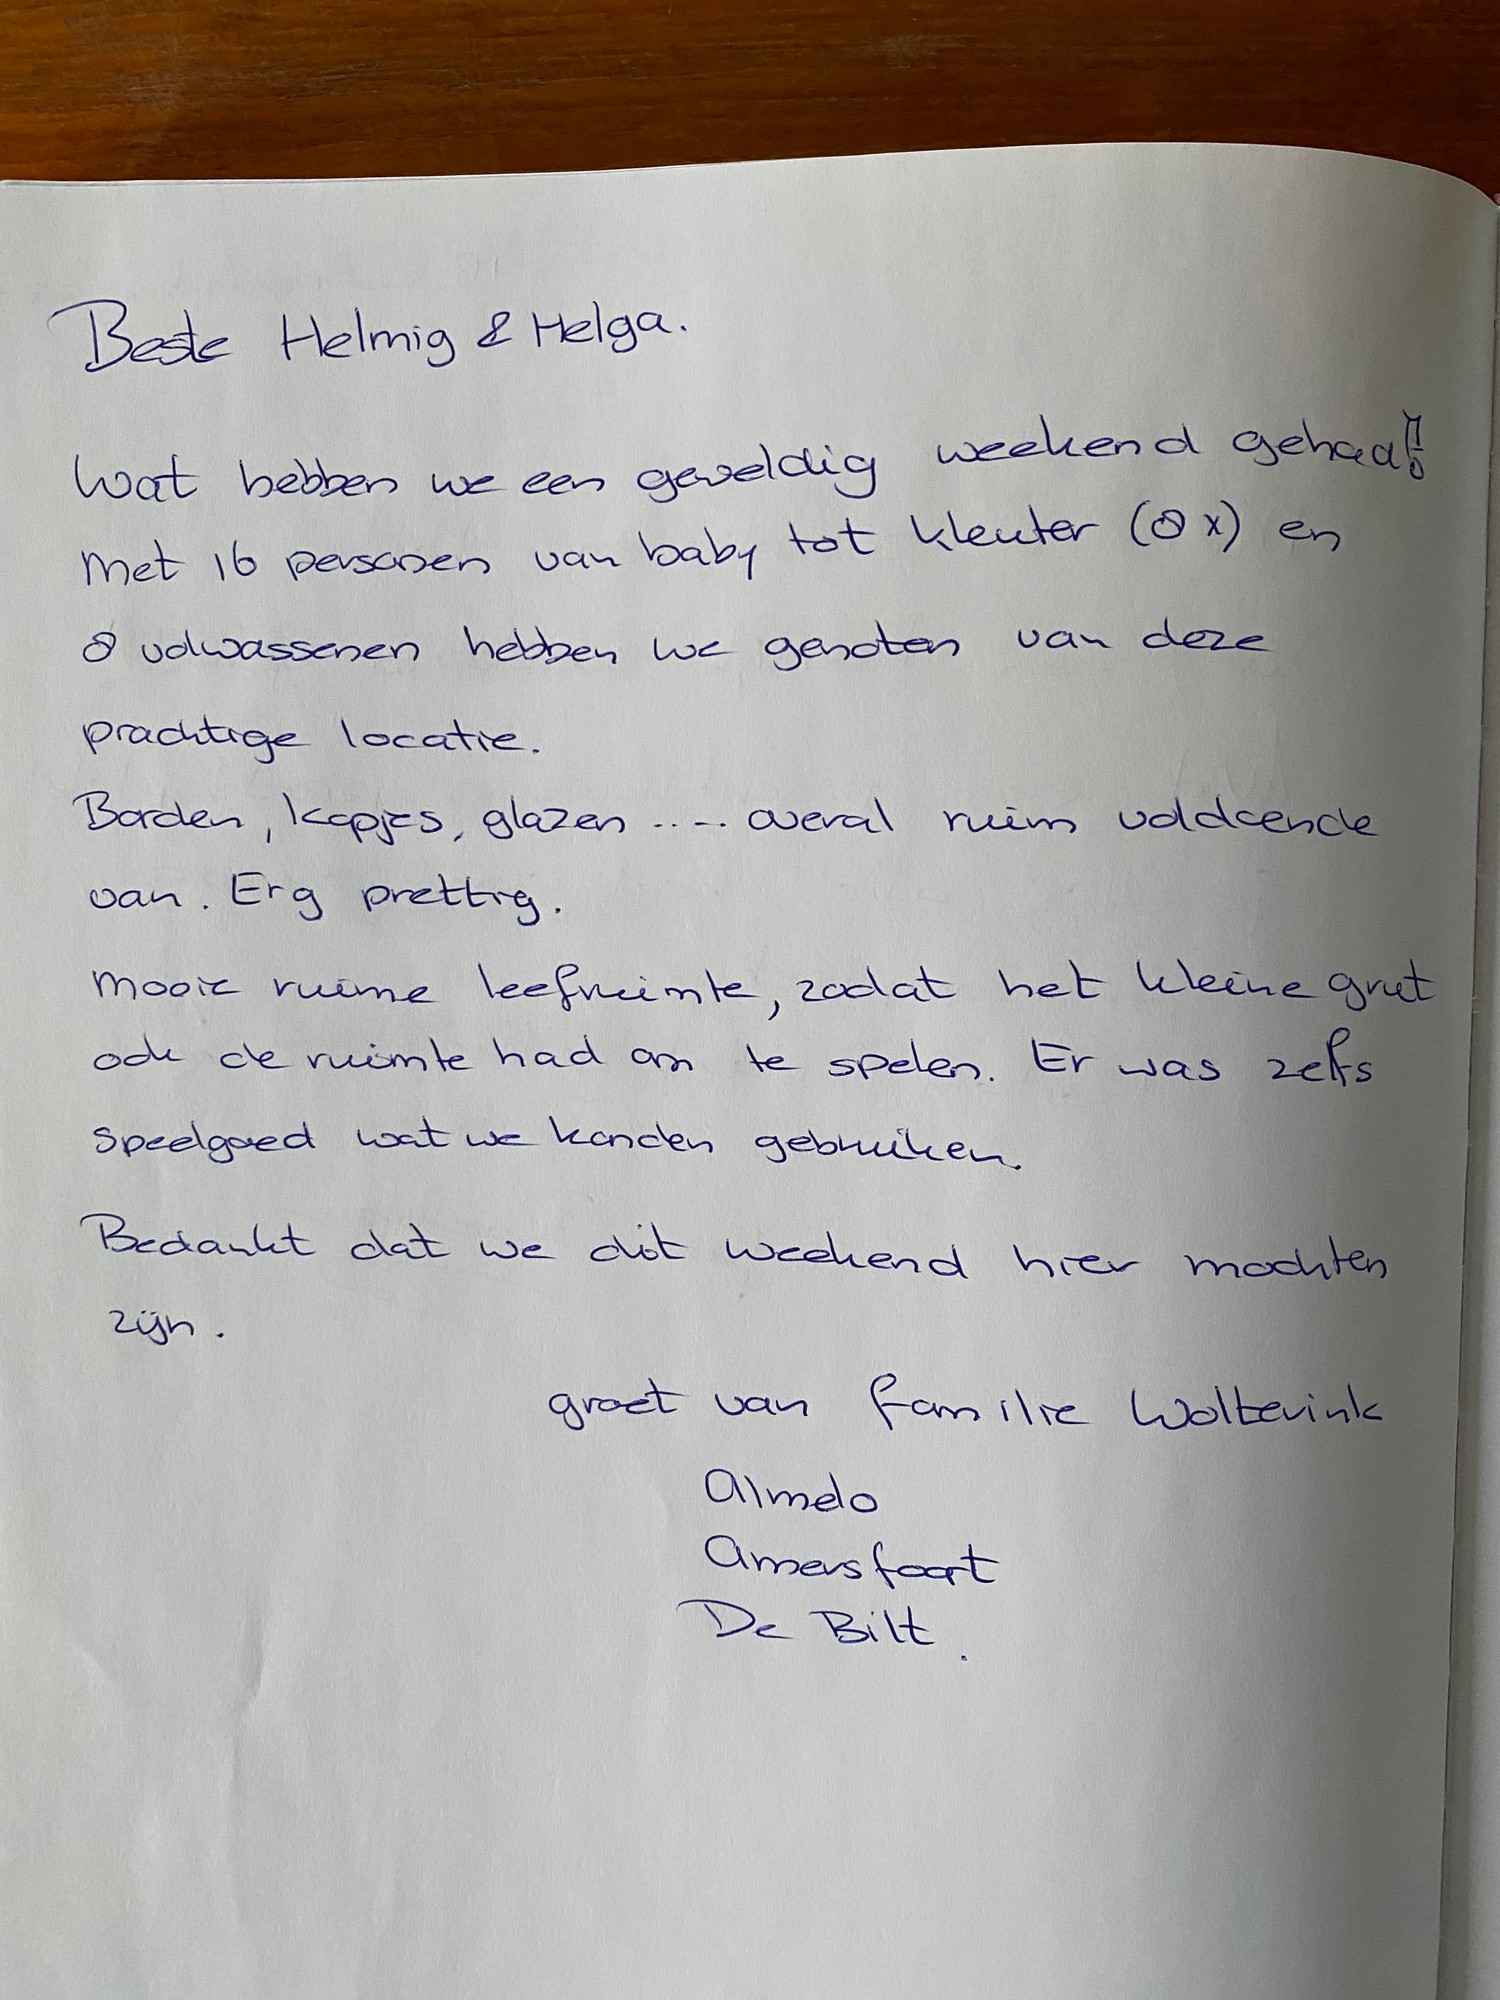 Beste Helmig & Helga.
Wat hebben we een geweldig weekend gehad!
Met 16 personen van baby tot kleuter (8x) en
8 volwassenen hebben we genoten van deze
prachtige locatie.
Borden, kopjes, glazen ..... overal ruim voldoende
van. Erg prettig.
Mooie ruime leefruimte, zodat het kleine grut
ook de ruimte had om te spelen. Er was zelfs
speelgoed wat we konden gebruiken.
Bedankt dat we dit weekend hier mochten
zijn.
groet van familie Wolterink
Almelo
Amersfoort
De Bilt.